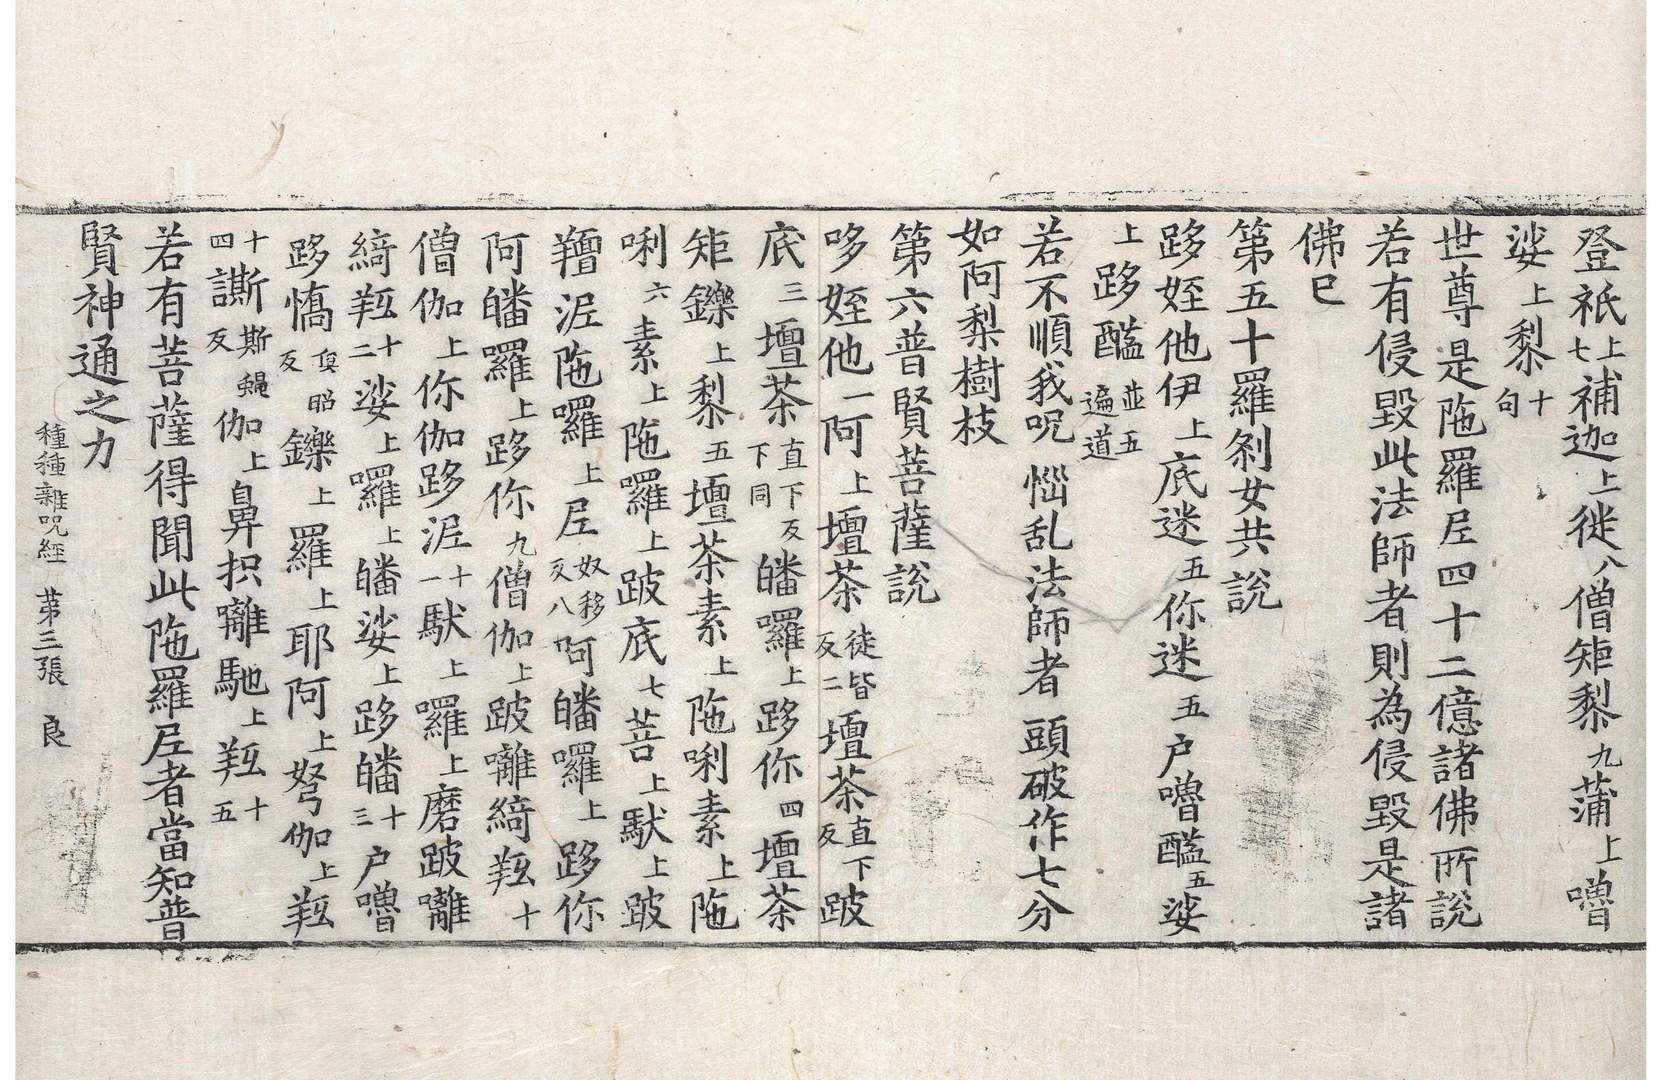 登祇上七補迦上徙八僧矩黎九蒲上嚕
娑上黎十句
世尊是陁羅𡰱四十二億諸佛所說
若有侵毀此法師者則為侵毀是諸
佛巳
第五十羅剎女共說
跢姪他伊上底迷五你迷五户嚕醯五娑
上跢醯並五遍道
若不順我呪惱乱法師者頭破作七分
如阿梨樹枝
第六普賢菩薩說
哆姪他一阿上壇茶徒皆反二壇茶直下反跛
底三壇茶直下反下同皤囉上跢你四壇茶
矩鑠上黎五壇茶素上陁唎素上陁
唎六素上陁羅上跛底七菩上馱上跛
羶泥陁囉上𡰱奴移反八呵皤囉上跢你
阿皤羅上跢你九僧伽上跛囄綺羝十
僧伽上你伽跢泥十一馱上囉上磨跛囄
綺羝十二娑上囉上皤娑上跢皤十三户嚕
跢憍反昭鑠上羅上耶阿上弩伽上羝
十四譭斯反伽上鼻抧囄馳上羝十五
若有菩薩得聞此陁羅𡰱者當知普
賢神通之力
種種雜呪經　第三張　良